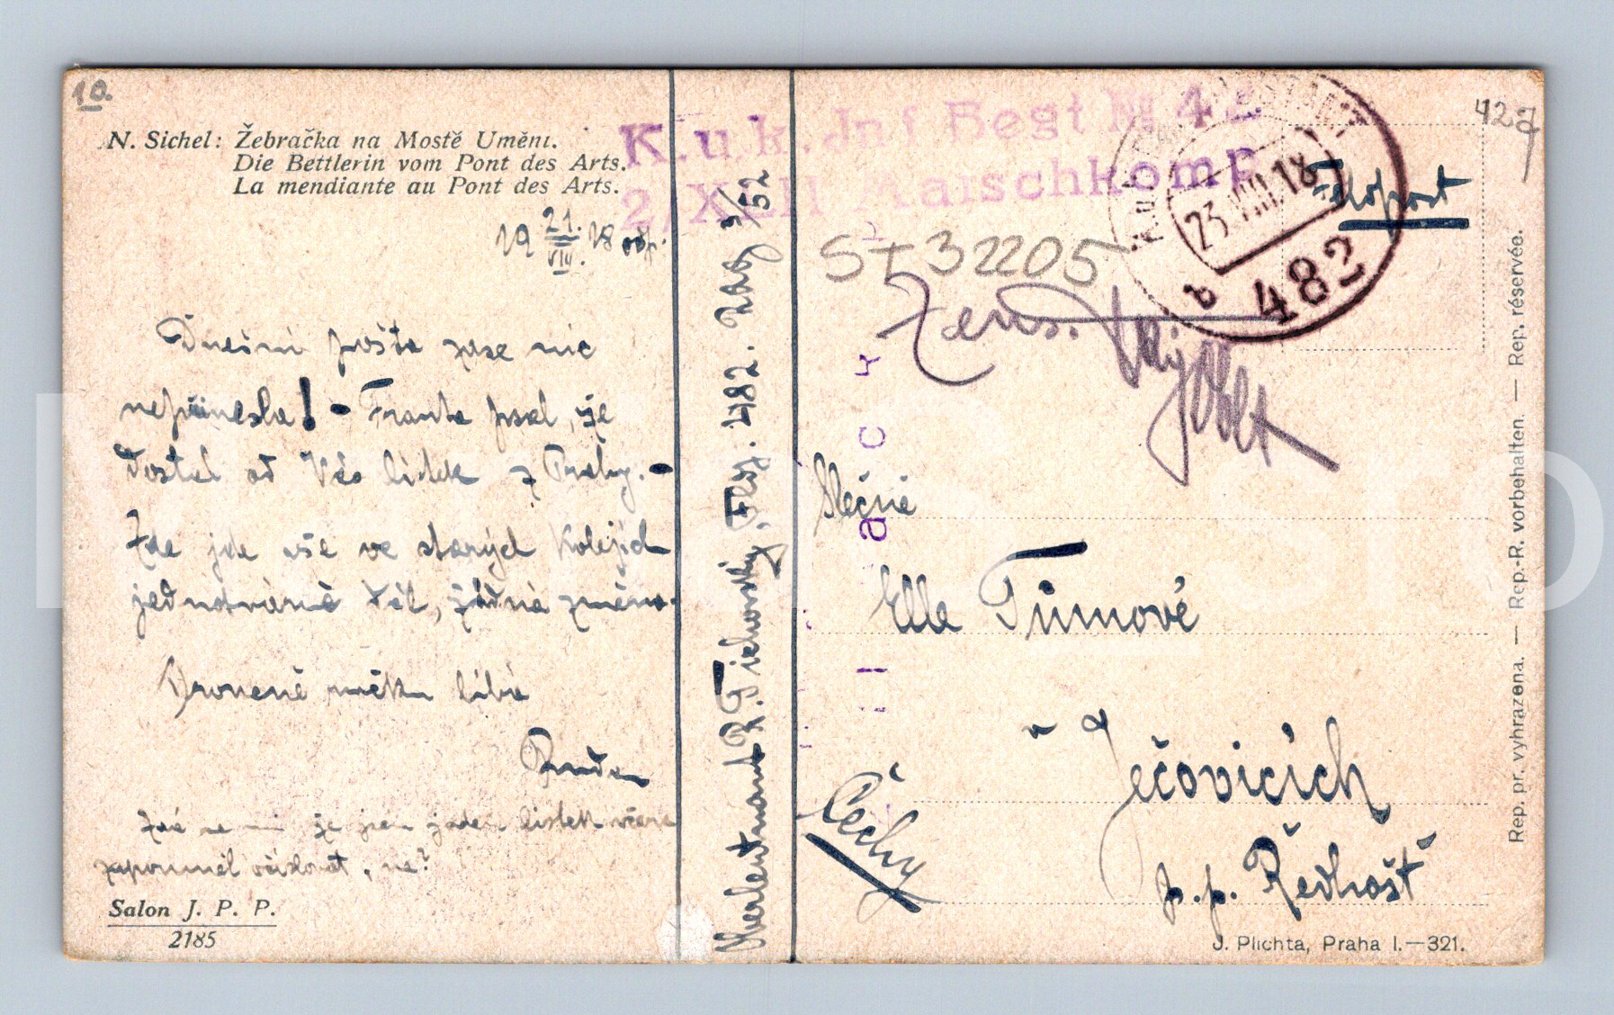 10.
N. Sichel: Žebračka na Mostě Uměnı.
Die Bettlerin vom Pont des Arts.
La mendiante au Pont des Arts.
19 21./VIII. 18 odp.
Dnešní pošta zase nic
nepřinesla! - Franta psal, že
dostal od Vás lístek z Prahy. -
Zde jde vše ve starých kolejích
jednotvárně dál, žádná změna.
líbá
Ruda
že jsem jeden lístek včera
zapomněl očíslovat, ne?
Salon J. P. P.
2185
Oberleutnant R. Tichovský, Fldp. 482.
K.u.k. Inf Regt № 42
2/XLII Marschkomp
427
Feldpost
23.VIII.18
b 482
St 32205
Zens.
Slečně
Elle Tůmové
v Ječovicích
p.p. Ředhošť
Čechy
Rep. pr. vyhrazena. — Rep.-R. vorbehalten. — Rep. réservée.
J. Plichta, Praha I.—321.